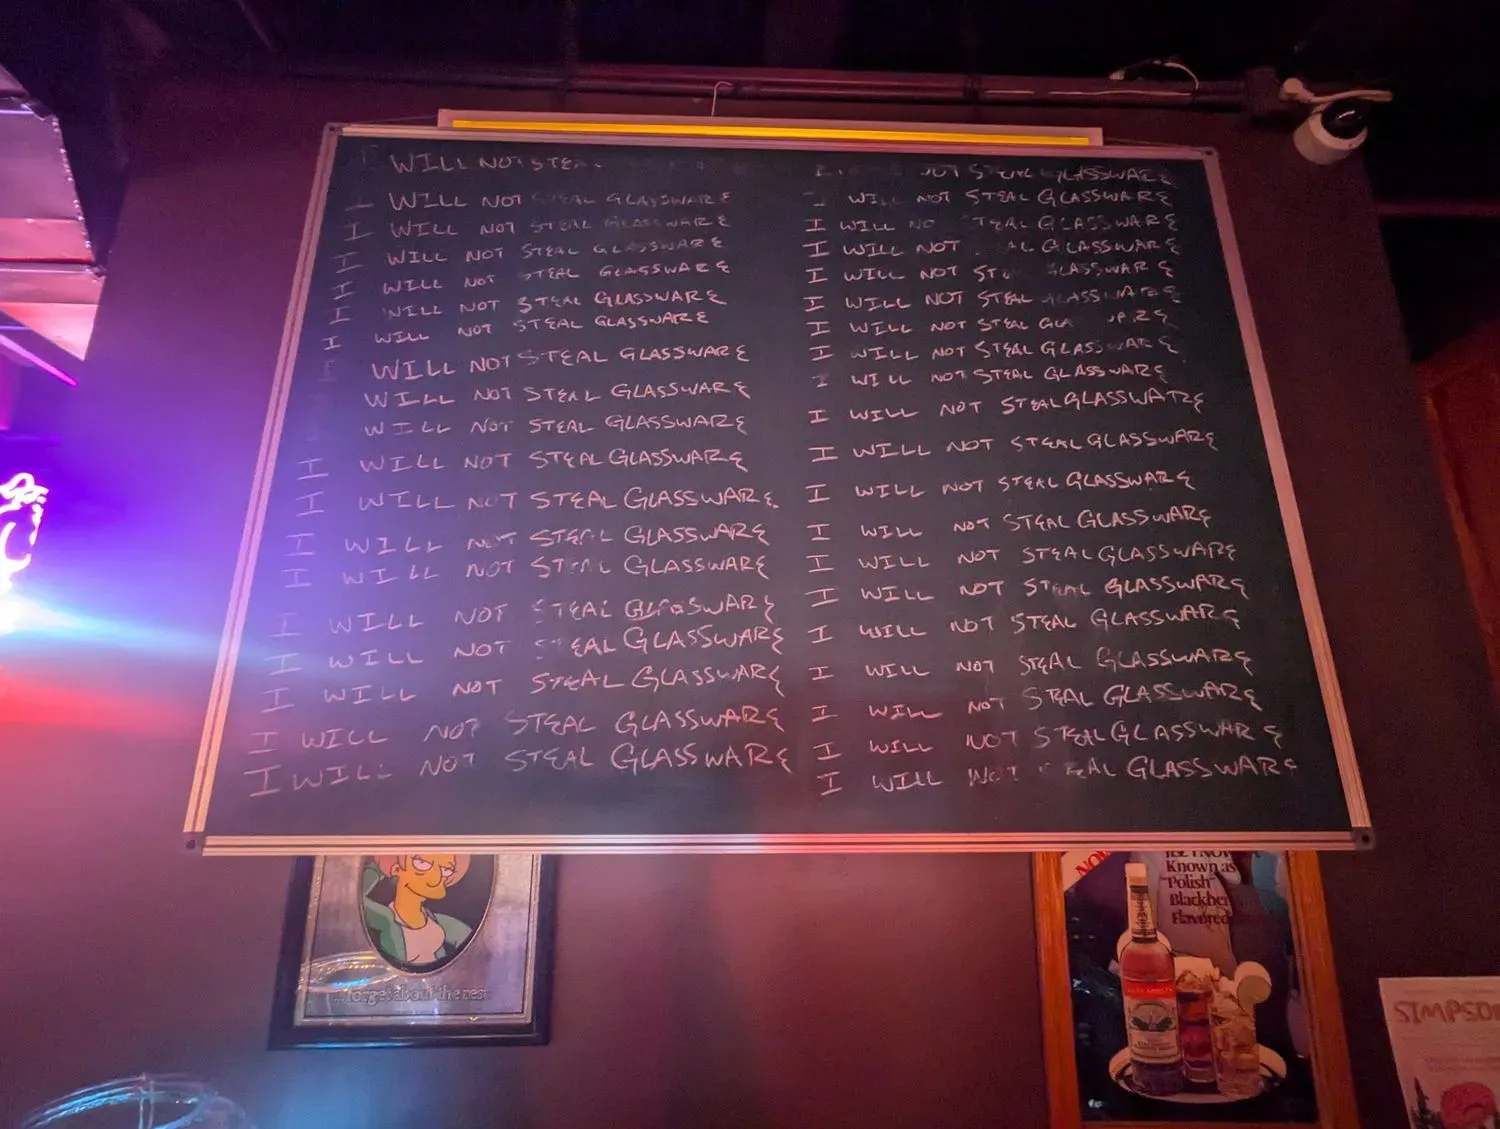 WILL NOT STEA
I WILL NOT STEAL GLASSWARE
I WILL NOT STEAL GLASSWARE
I WILL NOT STEAL GLASSWARE
I WILL NOT STEAL GLASSWARE
I WILL NOT STEAL GLASSWARE
I WILL NOT STEAL GLASSWARE
WILL NOT STEAL GLASSWARE
WILL NOT STEAL GLASSWARE
WILL NOT STEAL GLASSWARE
I WILL NOT STEAL GLASSWARE
I WILL NOT STEAL GLASSWARE
I WILL NOT STEAL GLASSWARE
I WILL NOT STEAL GLASSWARE
I WILL NOT STEAL GLASSWARE
I WILL NOT STEAL GLASSWARE
I WILL NOT STEAL GLASSWARE
I WILL NOT STEAL GLASSWARE
I WILL NOT STEAL GLASSWARE
NOT STEAL GLASSWARE
I WILL NOT STEAL GLASSWARE
I WILL NO STEAL GLASSWARE
I WILL NOT AL GLASSWARE
I WILL NOT STE GLASSWARE
I WILL NOT STEAL GLASSWARE
I WILL NOT STEAL GLA
I WILL NOT STEAL GLASSWARE
I WILL NOT STEAL GLASSWARE
I WILL NOT STEAL GLASSWARE
I WILL NOT STEAL GLASSWARE
I WILL NOT STEAL GLASSWARE
I WILL NOT STEAL GLASSWARE
I WILL NOT STEAL GLASSWARE
I WILL NOT STEAL GLASSWARE
I WILL NOT STEAL GLASSWARE
I WILL NOT STEAL GLASSWARE
I WILL NOT STEAL GLASSWARE
I WILL NOT STEAL GLASSWARE
I WILL NOT STEAL GLASSWARE
...forget about the rest
Known as
"Polish"
Blackber
Flavored
SIMPSO